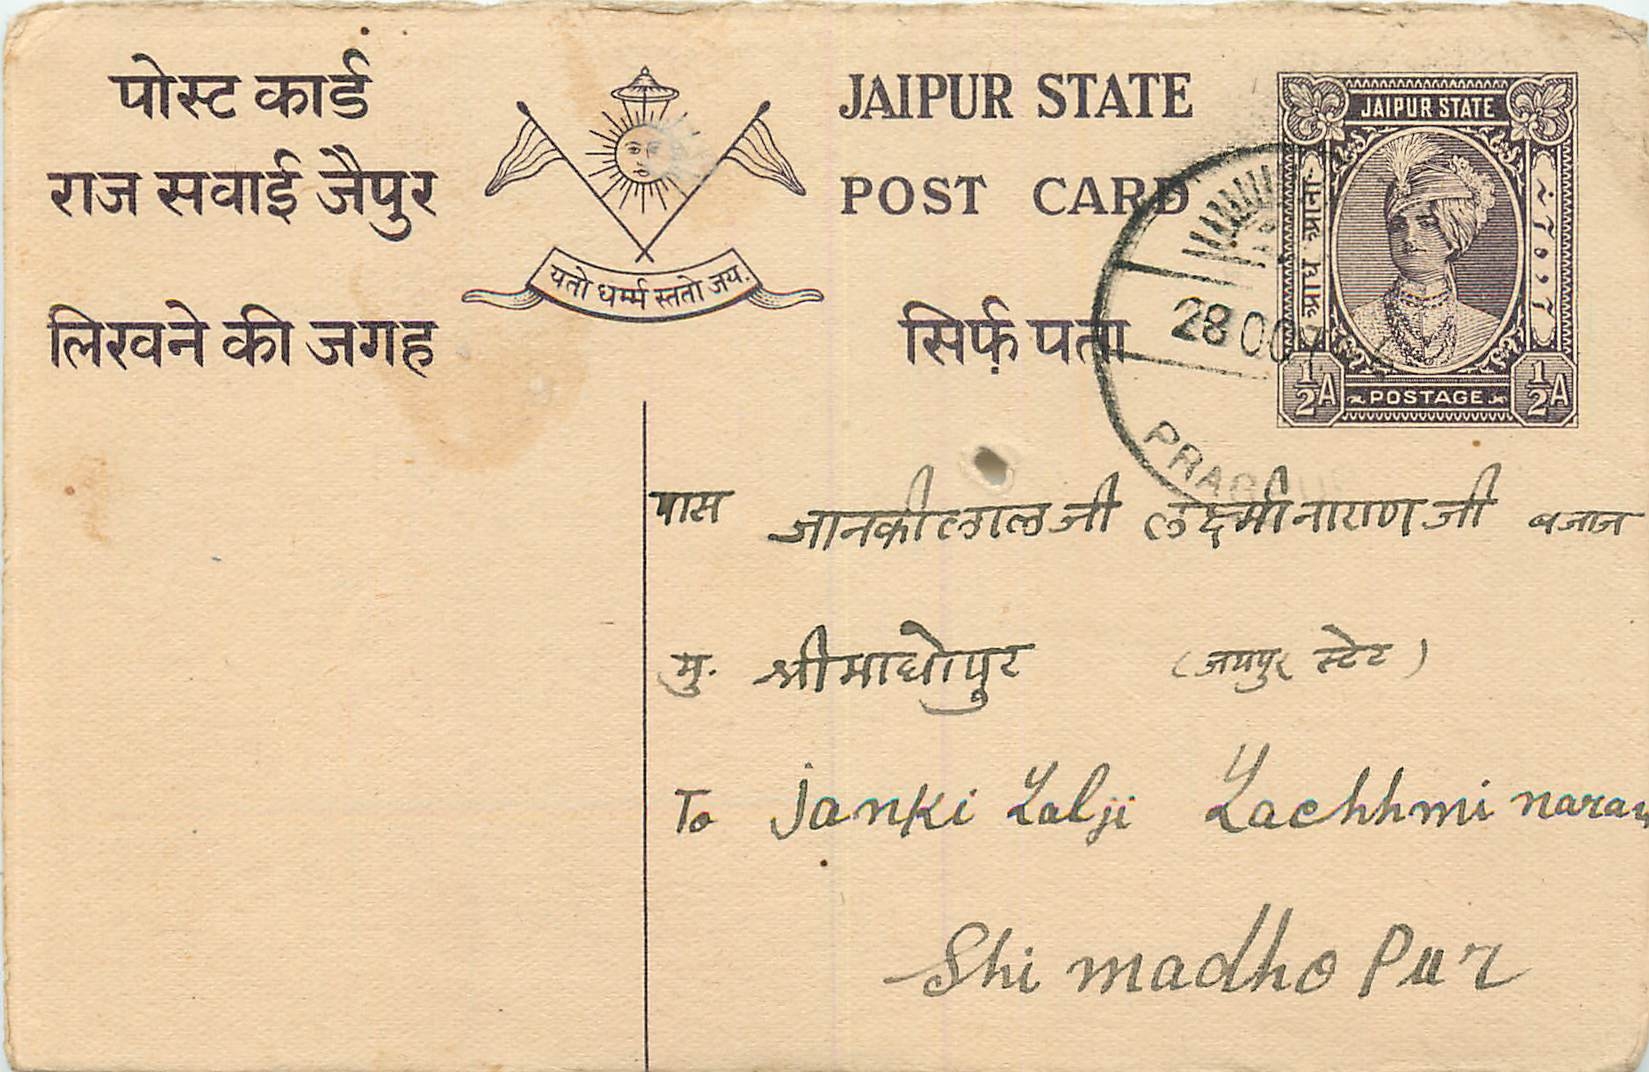 पोस्ट कार्ड
राज सवाई जैपुर
लिखने की जगह
यतो धर्म्म स्ततो जय.
JAIPUR STATE
POST CARD
सिर्फ़ पता
JAIPUR STATE
½A POSTAGE ½A
28 OC
पास जानकीलालजी लक्ष्मीनाराणजी बजाज
मु. श्रीमाधोपुर (जयपुर स्टेट)
To Janki Lalji Lachhmi naran
Shi madho Pur